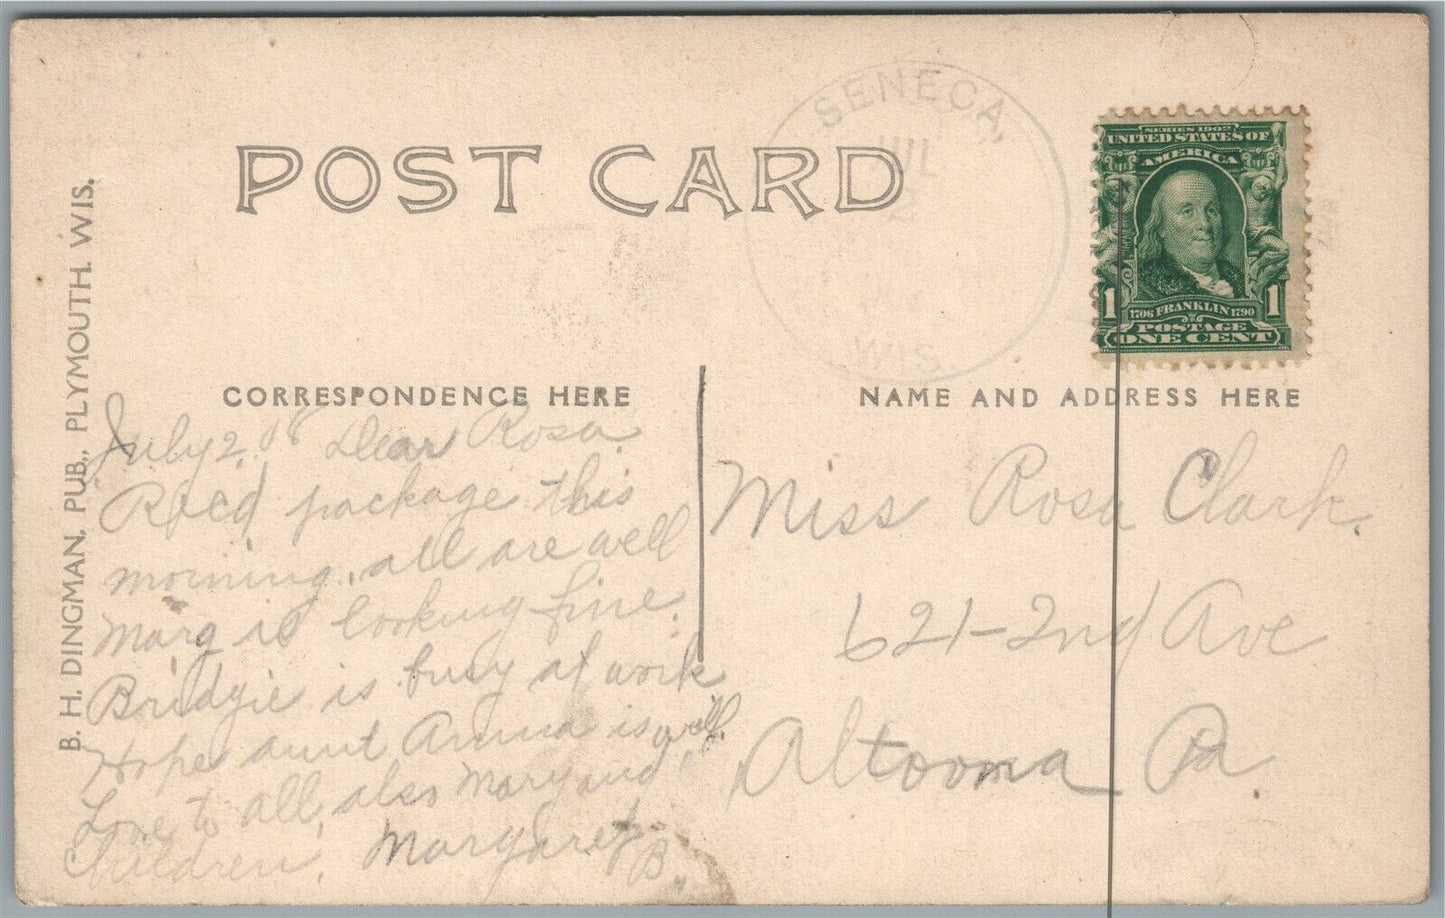 POST CARD
SENECA,
JUL
2
WIS.
SERIES 1902
UNITED STATES OF
AMERICA
1 1706 FRANKLIN 1790 1
POSTAGE
ONE CENT
B. H. DINGMAN, PUB., PLYMOUTH, WIS.
CORRESPONDENCE HERE
NAME AND ADDRESS HERE
July 2 08 Dear Rosa
Recd package this
morning, all are well
Marg is looking fine.
Bridgie is busy at work
Hope aunt Anna is well
Love to all, also Mary and
Children, Margaret
B.
Miss Rosa Clark.
621-2nd Ave
Altoona Pa.